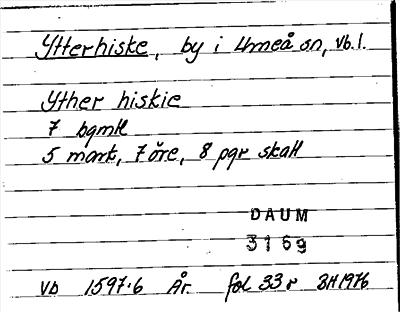 Ytterhiske, by i Umeå sn, Vb.l.
Yther hiskie
7 bgmtl
5 mark, 7 öre, 8 pgr skatt
DAUM
3169
Vb 1597:6 År fol 33 r BH 1976